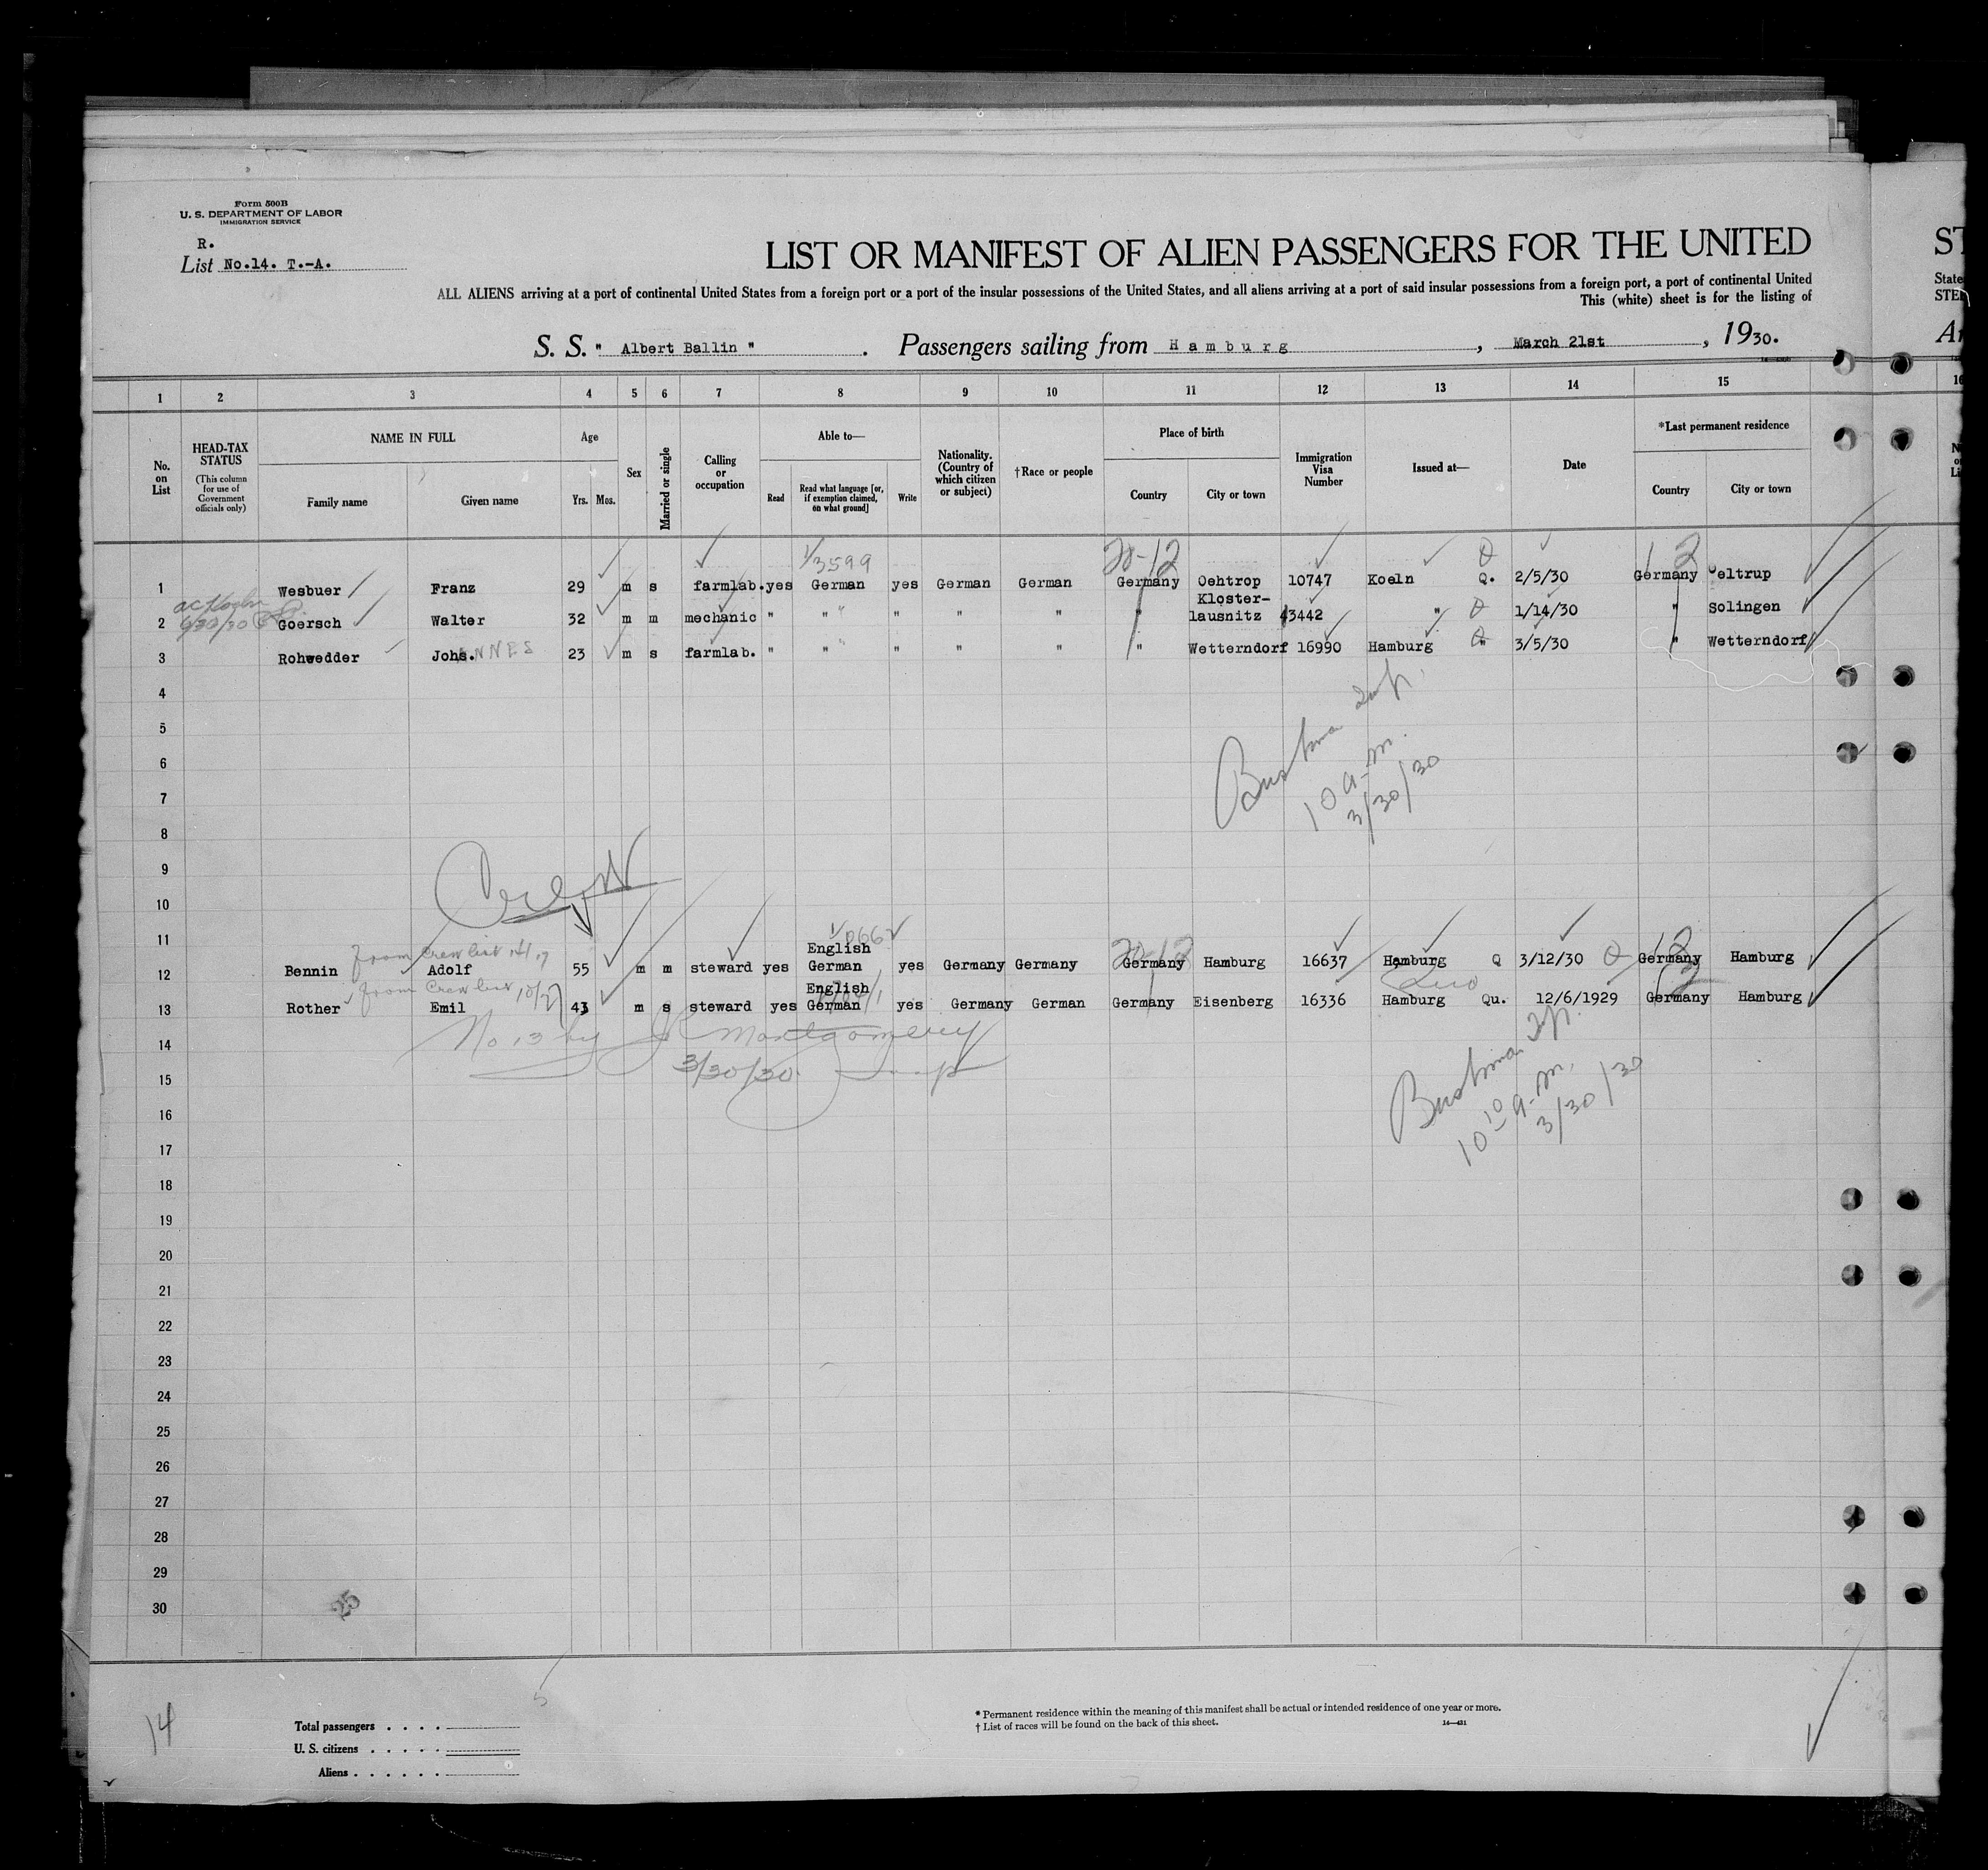 Form 500B
U. S. DEPARTMENT OF LABOR
IMMIGRATION SERVICE
R.
List No.14. T.-A.
LIST OR MANIFEST OF ALIEN PASSENGERS FOR THE UNITED
ST
ALL ALIENS arriving at a port of continental United States from a foreign port or a port of the insular possessions of the United States, and all aliens arriving at a port of said insular possessions from a foreign port, a port of continental United
State
This (white) sheet is for the listing of
S. S. " Albert Ballin ". Passengers sailing from Hamburg, March 21st, 1930.
1 2 3 4 5 6 7 8 9 10 11 12 13 14 15
No. on List
HEAD-TAX STATUS (This column for use of Government officials only)
NAME IN FULL
Family name Given name
Age
Yrs. Mos.
Sex
Married or single
Calling or occupation
Able to—
Read
Read what language [or, if exemption claimed, on what ground]
Write
Nationality. (Country of which citizen or subject)
†Race or people
Place of birth
Country City or town
Immigration Visa Number
Issued at—
Date
*Last permanent residence
Country City or town
13599
20-12
12
1 Wesbuer Franz 29 m s farmlab. yes German yes German German Germany Oehtrop 10747 Koeln Q. 2/5/30 Germany eltrup
2 Goersch Walter 32 m m mechanic " " " " " " Kloster-lausnitz 43442 " 1/14/30 " Solingen
3 Rohwedder Johs. ANNES 23 m s farmlab. " " " " " " Wetterndorf 16990 Hamburg " 3/5/30 " Wetterndorf
4
5
6
7
10 a.m.
3/30/30
8
9
10
11
From Crew list
12 Bennin Adolf 55 m m steward yes English German yes Germany Germany Germany Hamburg 16637 Hamburg Q 3/12/30 Germany Hamburg
From Crew list
13 Rother Emil 43 m s steward yes English German yes Germany German Germany Eisenberg 16336 Hamburg Qu. 12/6/1929 Germany Hamburg
No 13 by Montgomery
3/30/30
14
15
10 10 a.m.
3/30/30
16
17
18
19
20
21
22
23
24
25
26
27
28
29
30
14
Total passengers
U. S. citizens
Aliens
* Permanent residence within the meaning of this manifest shall be actual or intended residence of one year or more.
† List of races will be found on the back of this sheet.
14—431